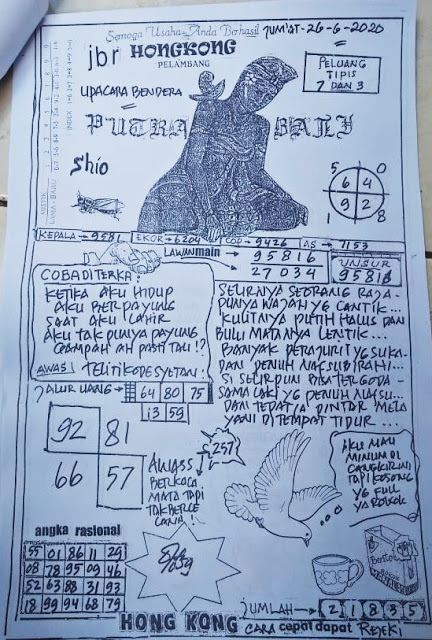 Semoga Usaha Anda Berhasil
JUM'AT-26-6-2020
jbr HONGKONG
PELAMBANG
UPACARA BENDERA
PELUANG
TIPIS
7 DAN 3
PUTRA BALI
Shio
5 0
6 4
9 2
1 8
KEPALA → 9581 EKOR → 6204 COP → 9426 AS → 7153
LAWAN main → 95816
27034
UNSUR
95818
COBA DITERKA:
KETIKA AKU HIDUP
AKU BERPAYUNG
SAAT AKU LAHIR
AKU TAK PUNYA PAYUNG
GAMPANG AH PASTI TAU !?
AWAS! TELITI KODE SYETAN!
SELIRNYA SEORANG RAJA-
PUNYA WAJAH YG CANTIK...
KULITNYA PUTIH HALUS DAN
BULU MATANYA LENTIK...
BANYAK PERAJURIT YG SUKA-
DAN PENUH NAFSU BIRAHI...
SI SELIR PUN BISA TERGODA-
SAMA LAKI YG PENUH NAFSU...
DAN TERNYATA PINTAR MELA
YANI DI TEMPAT TIDUR...
JALUR UANG → 64 80 75
13 59
92 81
66 57
AWASS
BERKACA
MATA TAPI
TAK BERCE
LANA!
257!
AKU MAU
MINUM DI
CANGKIR INI
TAPI KOSONG
YG FULL
YA ROKOK
angka rasional
55 01 86 11 29
08 78 95 09 46
52 63 88 31 93
18 99 94 68 79
JUMLAH → 2 1 8 3 5
HONG KONG CARA cepat dapat Rejeki